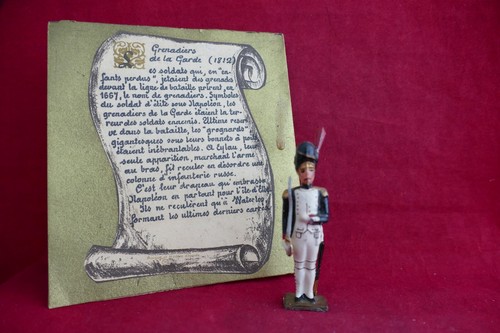 Grenadiers
de la Garde (1812)
es soldats qui, en "en-
fants perdus", jetaient des grenades
devant la ligne de bataille prirent, en
1667, le nom de grenadiers. Symboles
du soldat d'élite sous Napoléon, les
grenadiers de la Garde étaient la ter-
reur des soldats ennemis. Ultime réser-
ve dans la bataille, les "grognards"
gigantesques sous leurs bonnets à poils
étaient inébranlables. A Eylau, leur
seule apparition, marchant l'arme
au bras, fit reculer en désordre une
colonne d'infanterie russe.
C'est leur drapeau qu'embrassa
Napoléon en partant pour l'île d'Elbe
Ils ne reculèrent qu'à Waterloo
formant les ultimes derniers carrés